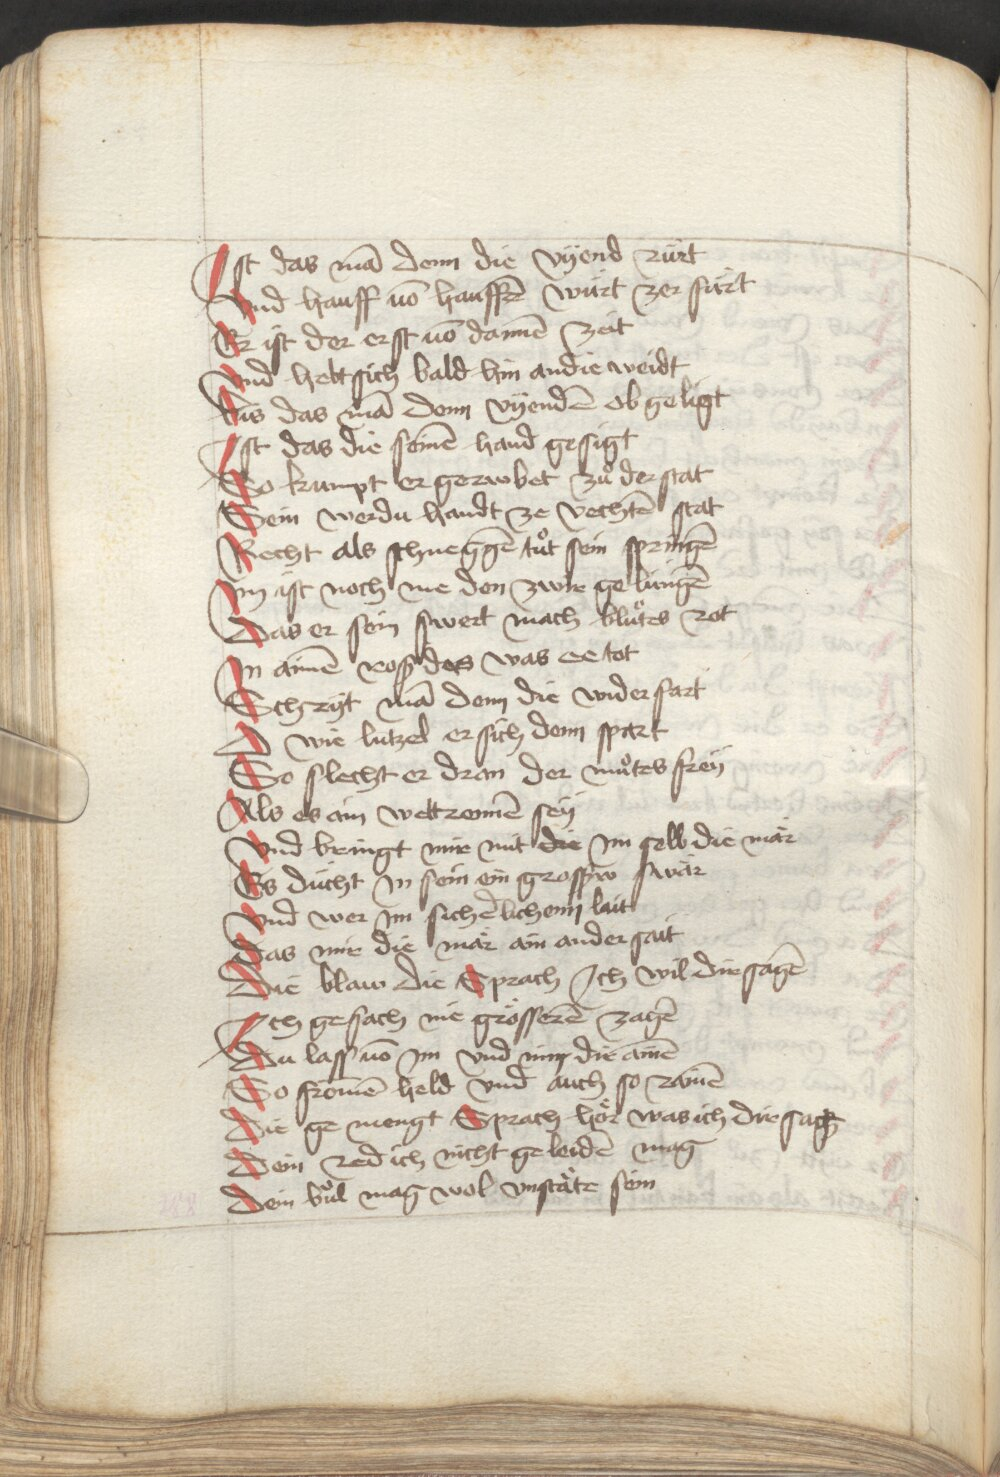 Ist das mā denn die vyend rürt
Vnd hauff vō hauffen würt zer fürt
Er ist der erst vō dannē zeit
Vnd hebt sich bald hin an die weidt
Bis das mā denn vyendē ob geligt
Ist das die seinē hand gesigt
So kumpt er gezwbet zuͦ der stat
Sein werdu handt ze vechtē stat
Recht als schneggē tuͦt sein springē
Im ist noch nie den zwir gelungē
Das er sein swert mach bluͦtes rot
In ainē ross des was ee tot
Schryt mā denn die widerfart
O wie lutzel er sich denn spart
So slecht er dran der muͦtes frey
Als es ain wettrennē sey
Vnd bringt mir mit die im selb die mär
Es dücht In sein ein grossw swär
Vnd wer im sichēlichenn lait
Das mir die mär ain ander sait
Die blaw die Sprach Ich wil dir sagē
Ich gesach nie grösserē zagē
Du lass vō im vnd nim dir ainē
So fromē held vnd auch so rainē
Die ge mengt Sprach hör was ich dir sag
Dein red ich nicht geleidē mag
Dein buͦl mag wol vnstäte sein